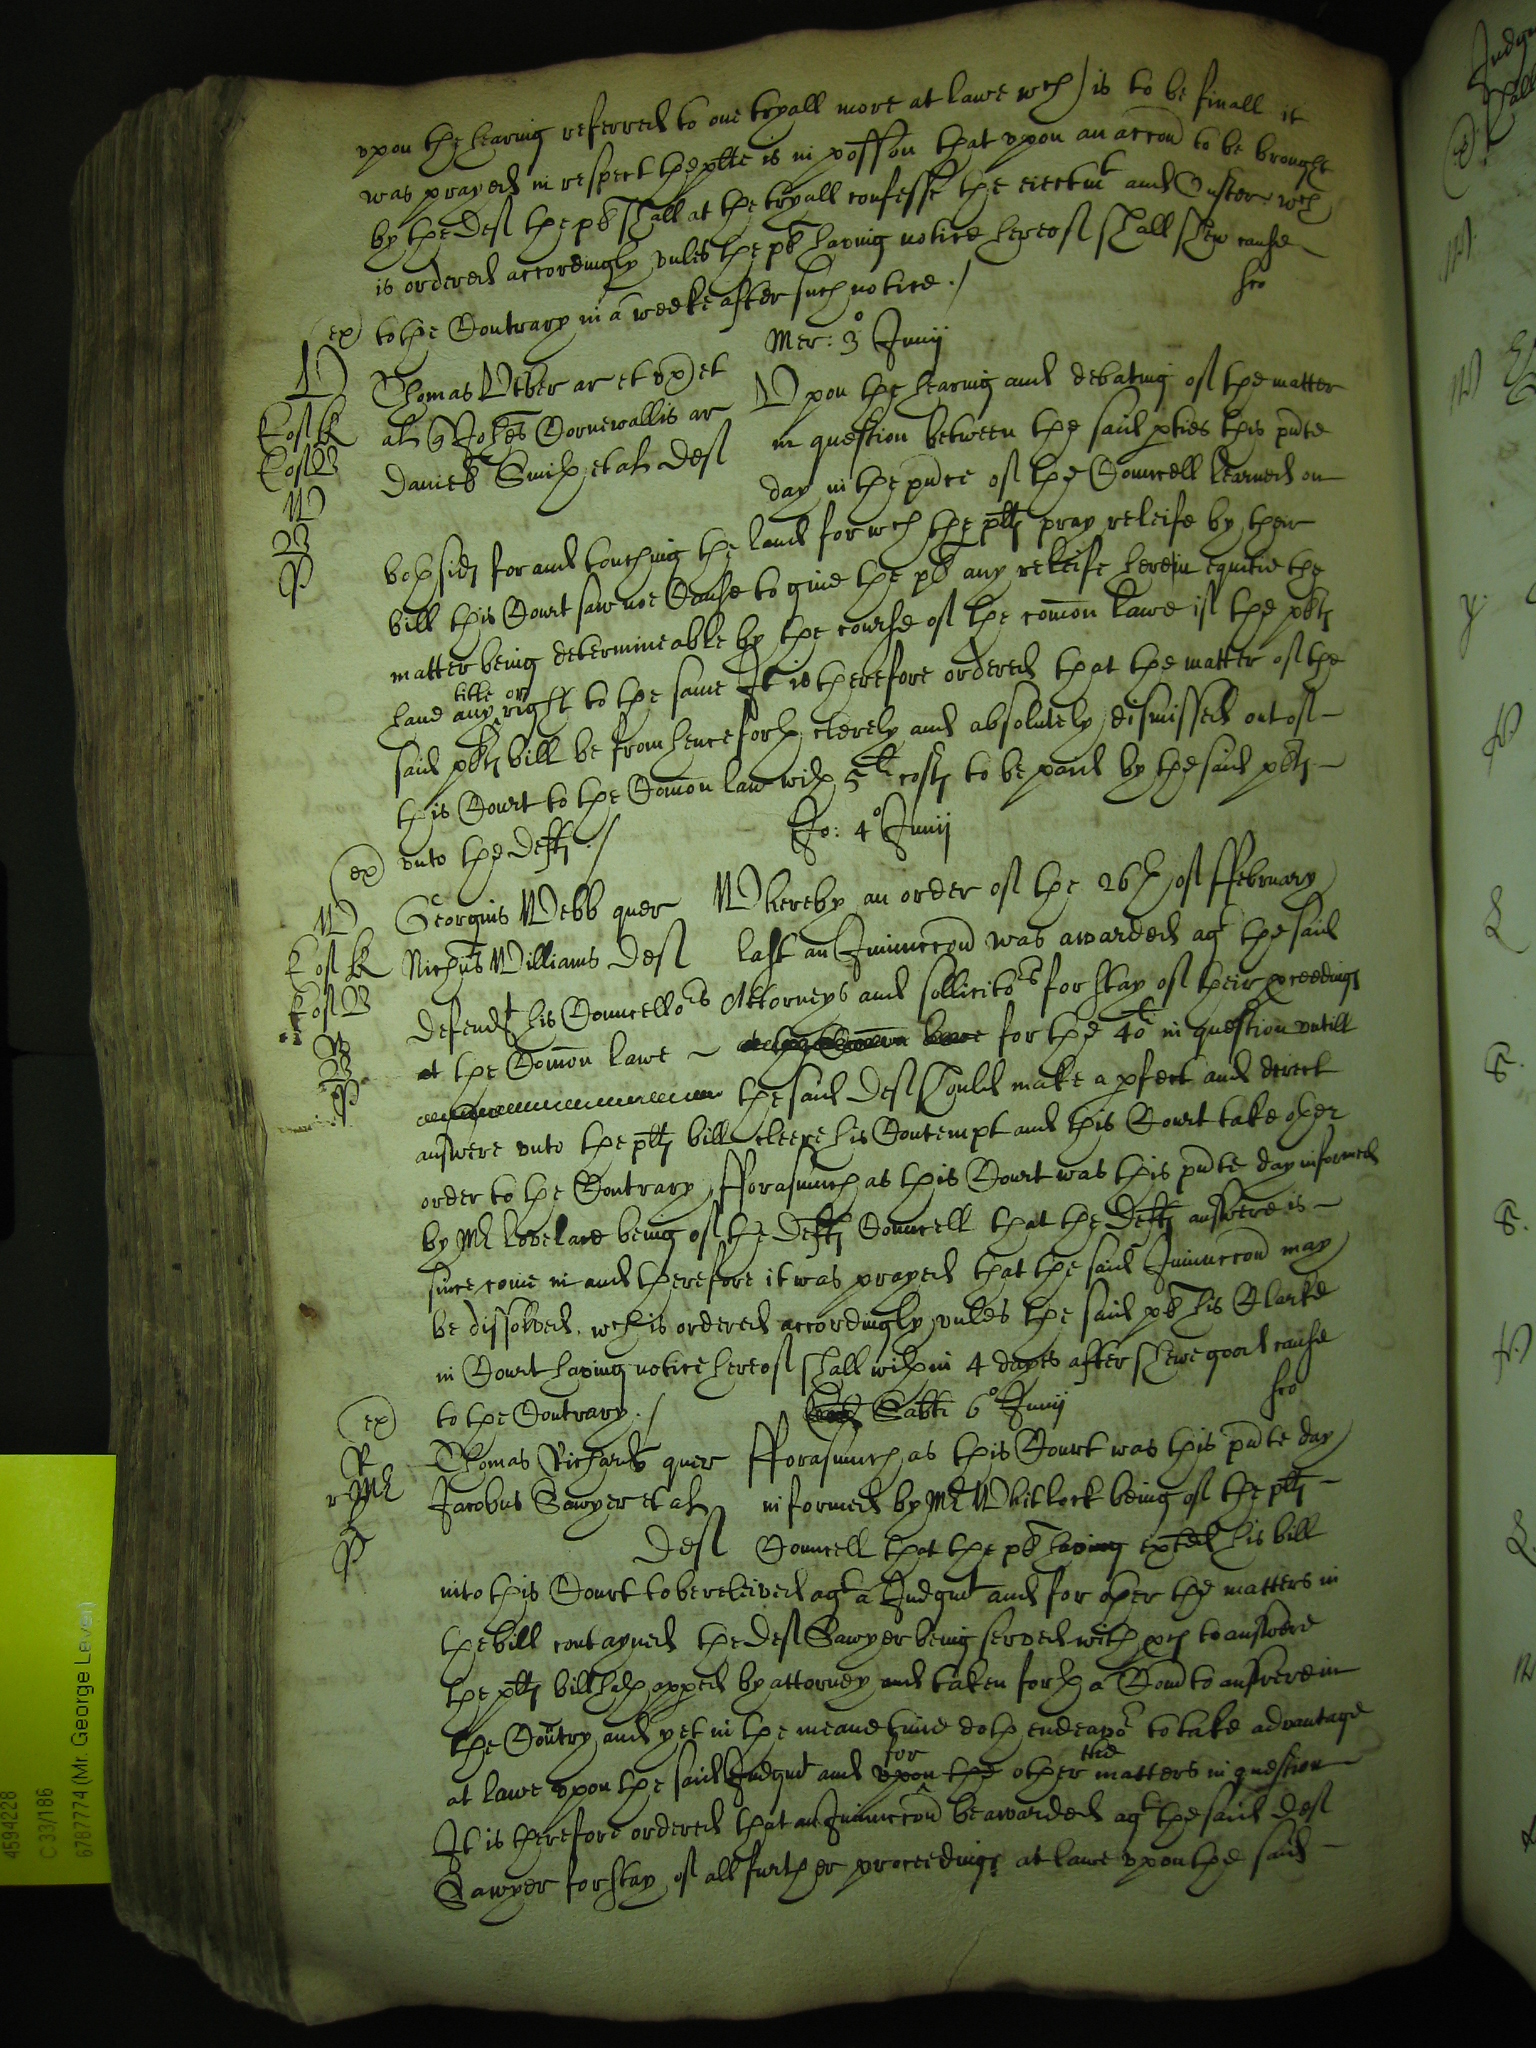 vpon the hearing referred to one tryall more at lawe wch is to be finall it
was prayed in respect the plte is in possion that vpon an accon to be brought
by the Def the pl shall at the tryall confesse the eiectmt and Ouster wch
is ordered accordingly vnles the pl having notice hereof shall shew cause
to the Contrary in a weeke after such notice ./
ex
Mer: 3o Junij
Thomas Weber ar et vx et
al q Johes Cornewallis ar
Daniel Smith et al Def
Vpon the hearing and debating of the matter
in question between the said pties this pnte
day in the pnce of the Councell learned on
both sides for and touching the land for wch the plts pray releife by their
bill this Court saw noe Cause to giue the pl any releife herein equitie the
matter being determineable by the course of the comon lawe if the plts
haue any title or right to the same It is therefore ordered that the matter of the
said plts bill be from henceforth clerely and absolutely dismissed out of
this Court to the Comon law with 5li costs to be paid by the said plts
vnto the Defts ./
ex
Jo: 4o Junij
Georgius Webb quer
Nichus Williams Def
Whereby an order of the 26th of ffebruary
last an Iniunccon was awarded agt the said
Defendt his Councellors Attorneys and sollicitors for stay of their pceedings
at the Comon lawe for the 40li in question vntill
the said Def should make a pfect and direct
answere vnto the plts bill cleere his Contempt and this Court take other
order to the Contrary fforasmuch as this Court was this pnte day informed
by Mr Lovelace being of the Defts Councell that the Defts answere is
since come in and therefore it was prayed that the said Iniunccon may
be dissolved. wch is ordered accordingly vnles the said pl his Clarke
in Court having notice hereof shall within 4 dayes after shewe good cause
to the Contrary ./
ex
Sabti 6o Junij
Thomas Richards quer
Jacobus Sawyer et al
Def
fforasmuch as this Court was this pnte day
informed by Mr Whitlock being of the plts
Councell that the pl having exhted his bill
into this Court to be releived agt a Judgmt and for other the matters in
the bill contayned the Def Sawyer being served with pces to answere
the plts bill hath apped by attorney and taken forth a Comn to answere in
the Country and yet in the meane time doth endeavor to take advantage
at lawe vpon the said Judgmt and for other the matters in question
It is therefore ordered that an Iniunccon be awarded agt the said Def
Sawyer for stay of all further proceedings at lawe vpon the said
4594228
C 33/186
6787774 (Mr. George Leven)